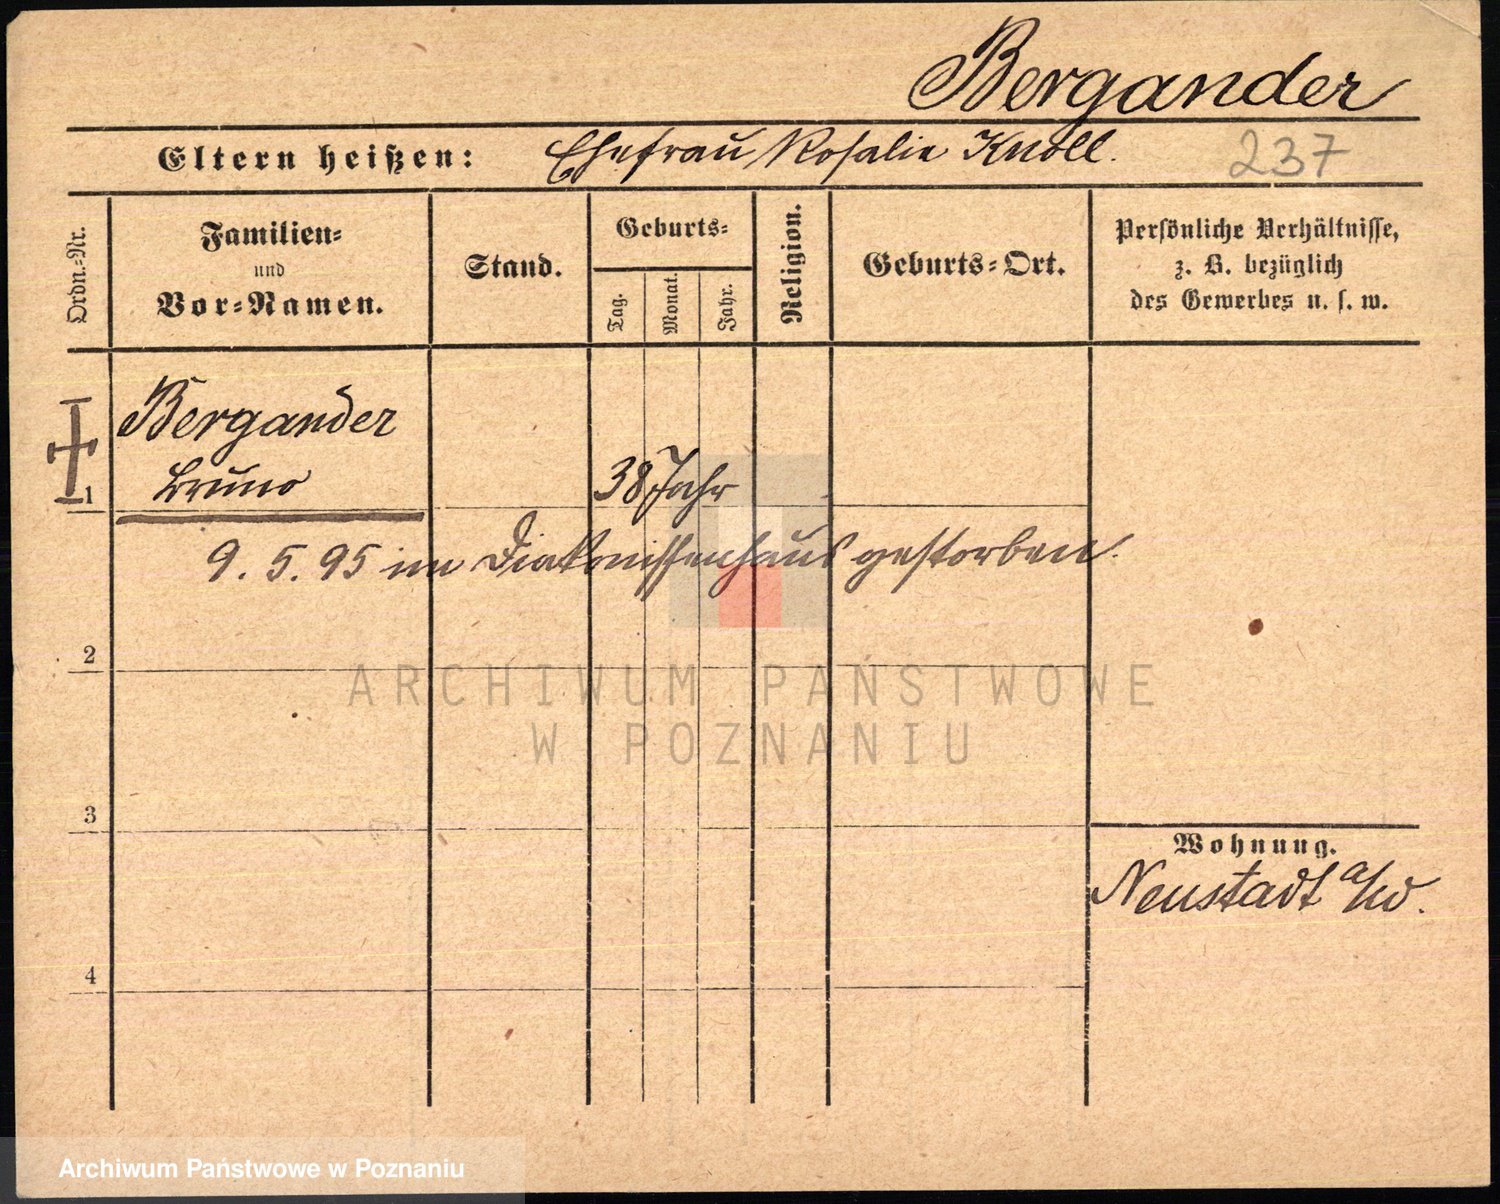 Bergander
Eltern heißen: Ehefrau Rosalie Knoll.
237
Ordn.-Nr.
Familien-
und
Vor-Namen.
Stand.
Geburts-
Tag.
Monat.
Jahr.
Religion.
Geburts-Ort.
Persönliche Verhältnisse,
z. B. bezüglich
des Gewerbes u. s. w.
Bergander
1 Bruno 38 Jahr
9. 5. 95 im Diakonissenhaus gestorben.
2
ARCHIWUM PAŃSTWOWE
W POZNANIU
3
Wohnung.
Neustadt a/W.
4
Archiwum Państwowe w Poznaniu